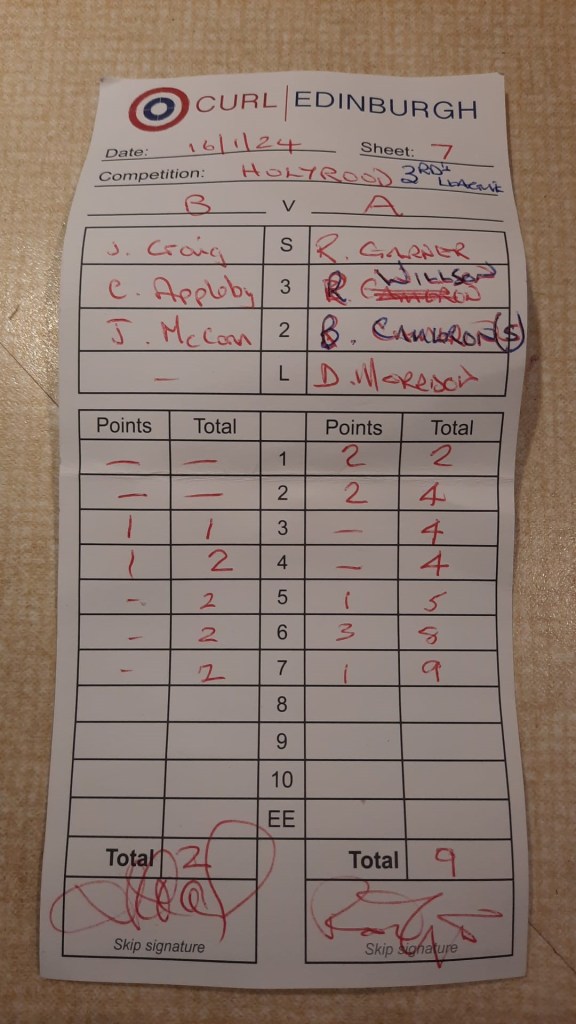 CURL EDINBURGH
Date: 16/1/24 Sheet: 7
Competition: HOLYROOD 3RDS LEAGUE
B V A
J. Craig S R. GARNER
C. Appleby 3 R. WILLSON
J. McCann 2 B. CAMERON(S)
— L D. MORRISON
Points Total Points Total
— — 1 2 2
— — 2 2 4
1 1 3 — 4
1 2 4 — 4
- 2 5 1 5
- 2 6 3 8
- 2 7 1 9
8
9
10
EE
Total 2 Total 9
Skip signature Skip signature